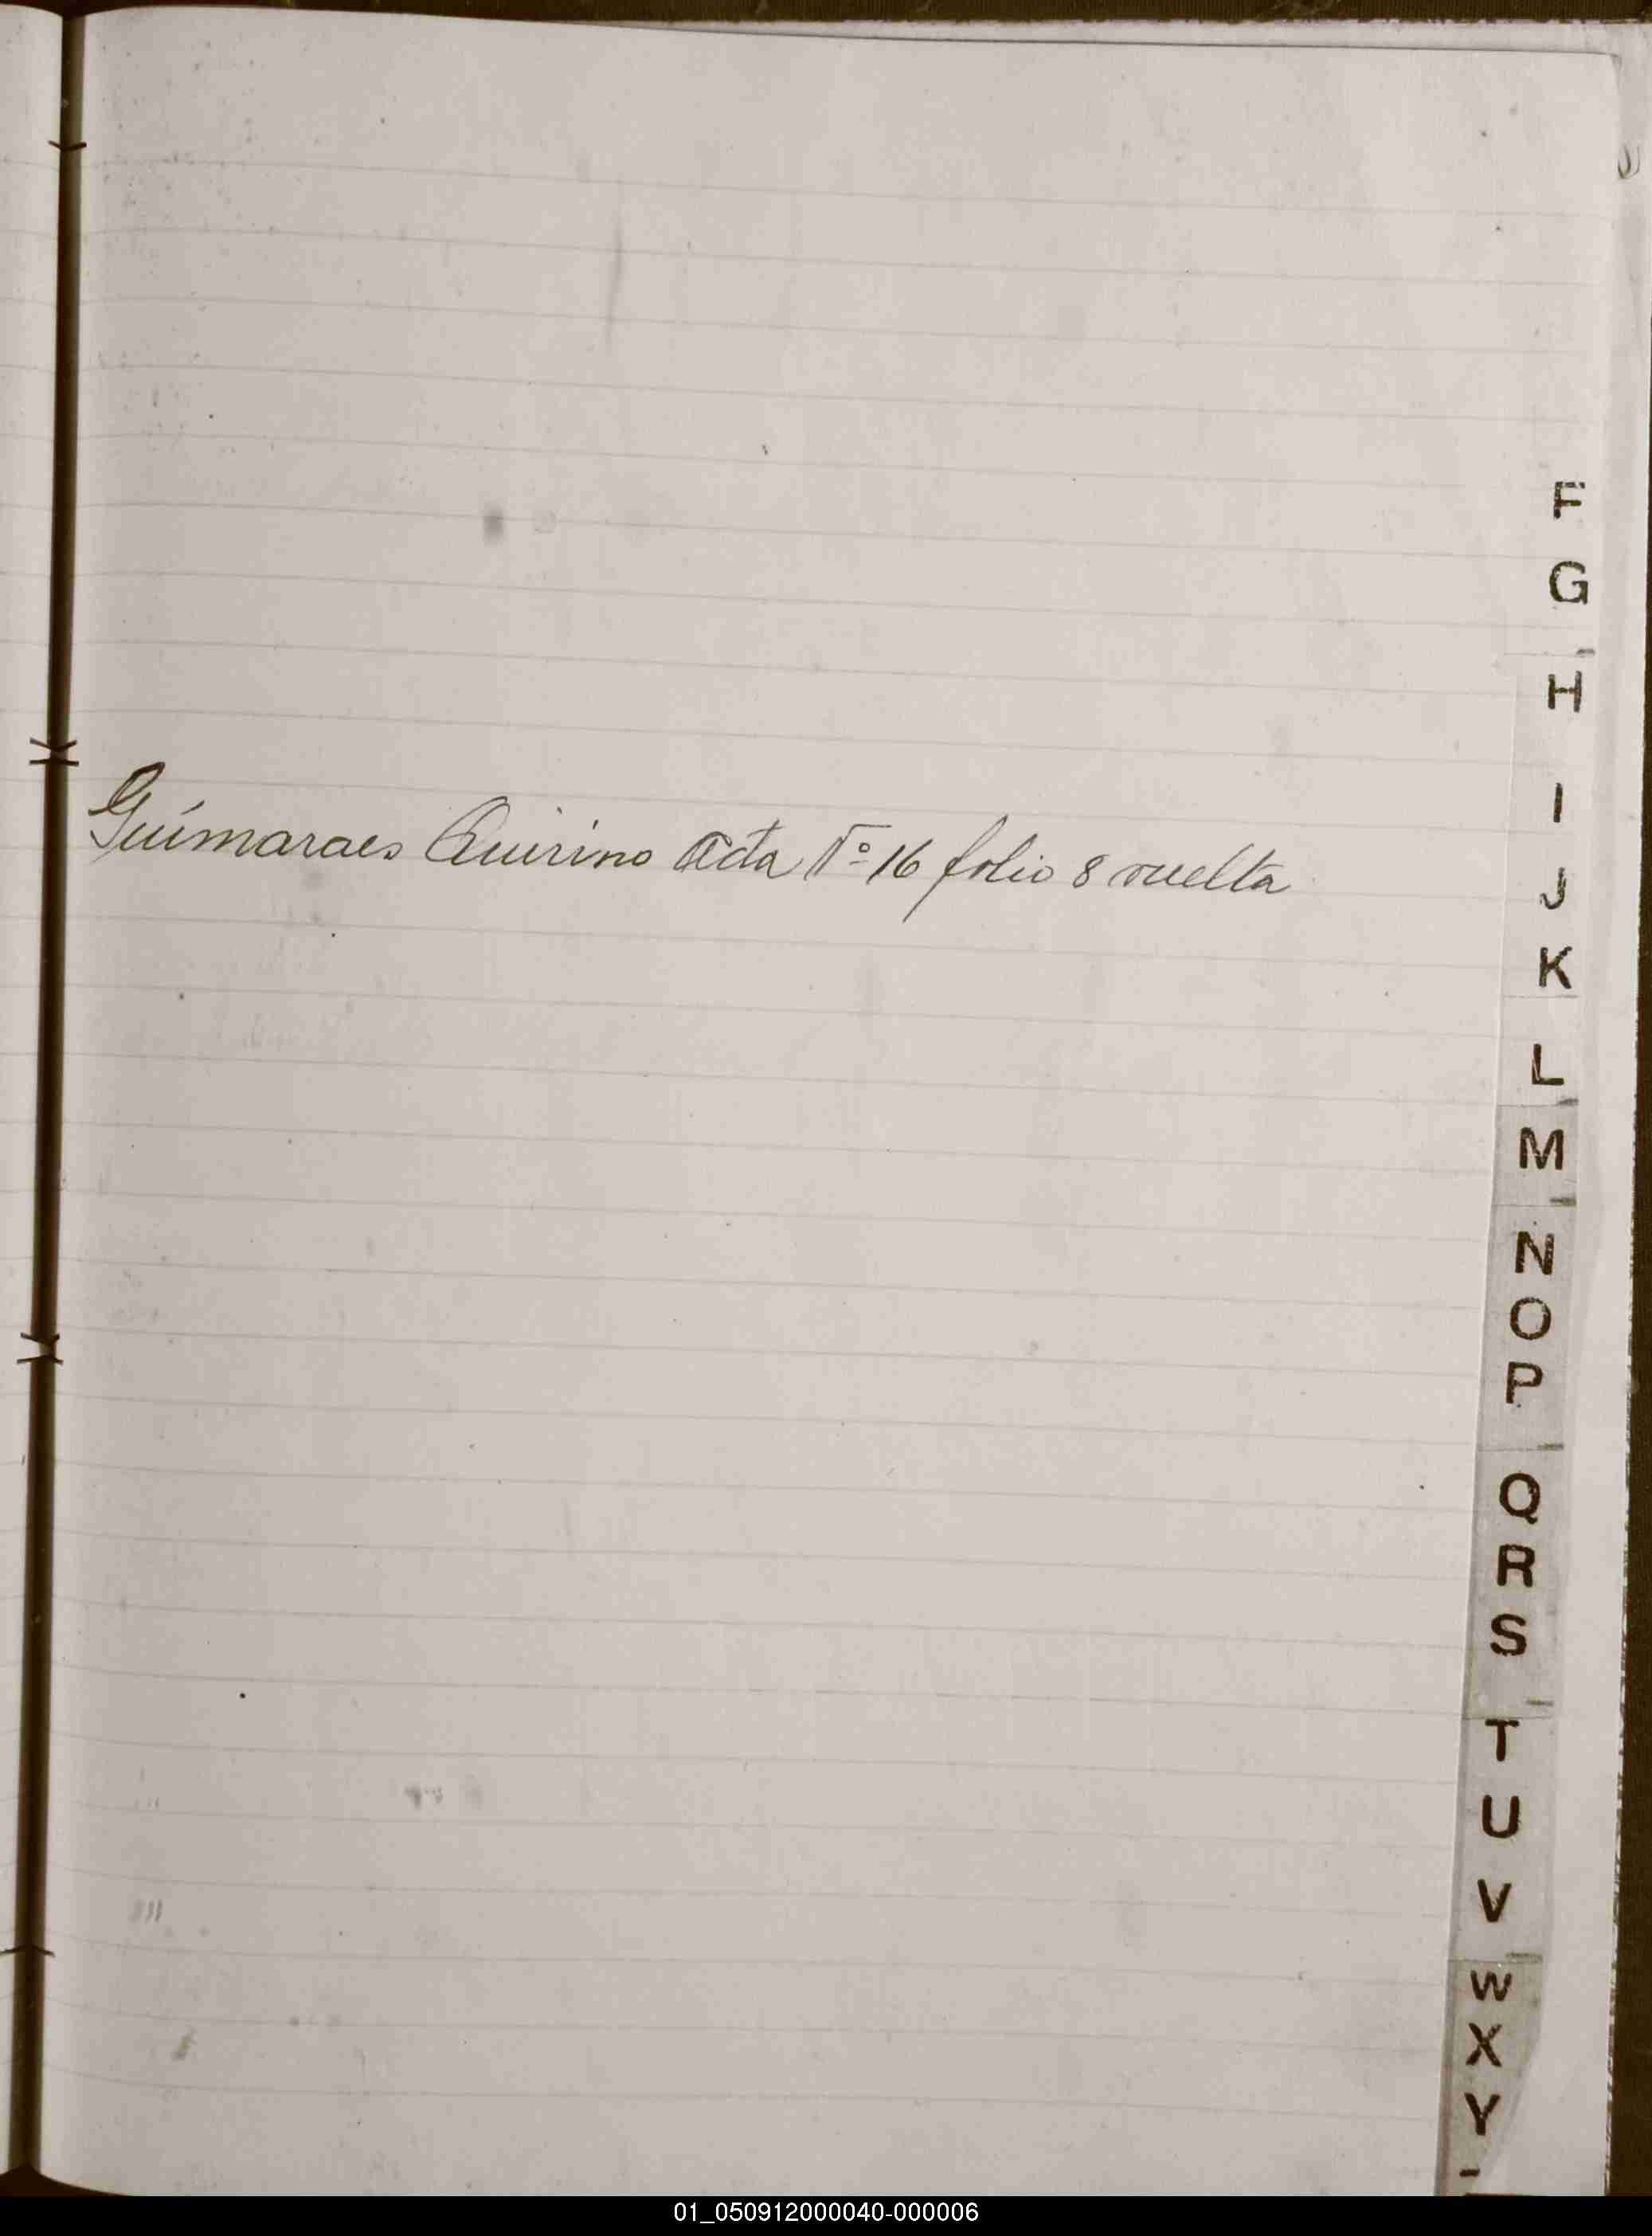 F
G
H
I
J
K
Guimaraes Quirino Acta Nº 16 folio 8 vuelta
L
M
N
O
P
Q
R
S
T
U
V
W
X
Y
01_050912000040-000006